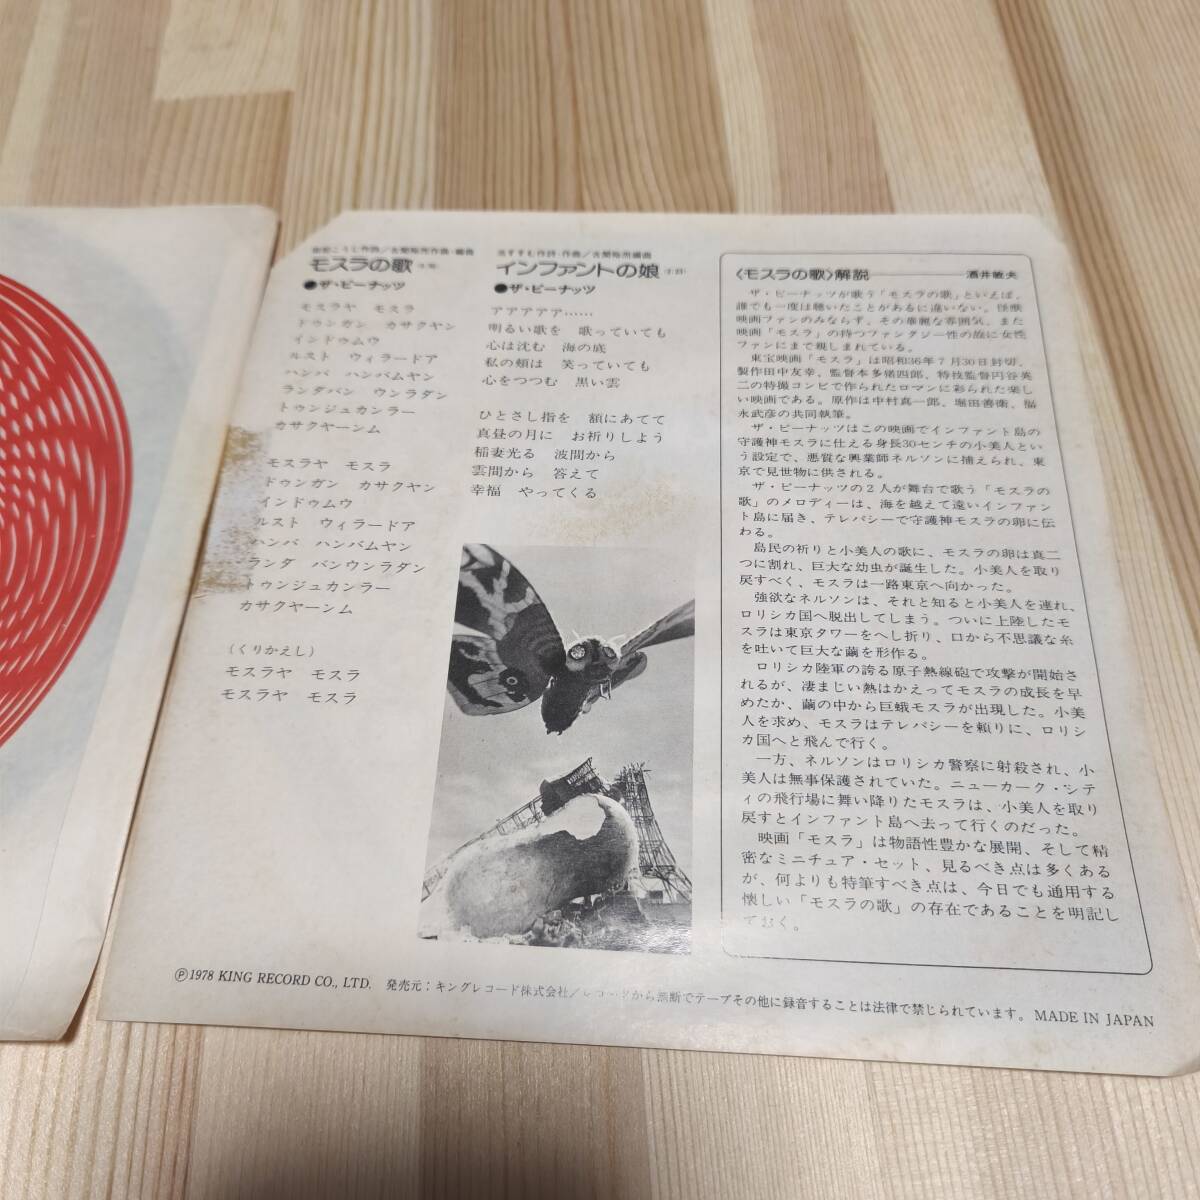 作詞／古関裕而作曲・編曲
モスラの歌
●ザ・ピーナッツ
モスラヤ モスラ
ドゥンガン カサクヤン
インドゥムウ
ルスト ウィラードア
ハンバ ハンバムヤン
ランダバン ウンラダン
トゥンジュカンラー
カサクヤーンム
モスラヤ モスラ
ドゥンガン カサクヤン
インドゥムウ
ルスト ウィラードア
ハンバ ハンバムヤン
ランダ バンウンラダン
トゥンジュカンラー
カサクヤーンム
（くりかえし）
モスラヤ モスラ
モスラヤ モスラ
作詩・作曲／古関裕而編曲
インファントの娘
●ザ・ピーナッツ
アアアアア……
明るい歌を 歌っていても
心は沈む 海の底
私の頬は 笑っていても
心をつつむ 黒い雲
ひとさし指を 額にあてて
真昼の月に お祈りしよう
稲妻光る 波間から
雲間から 答えて
幸福 やってくる
〈モスラの歌〉解説――酒井敏夫
ザ・ピーナッツが歌う「モスラの歌」といえば、
誰でも一度は聴いたことがあるに違いない。怪獣
映画ファンのみならず、その華麗な雰囲気、また
映画「モスラ」の持つファンタジー性の故に女性
ファンにまで親しまれている。
東宝映画「モスラ」は昭和36年7月30日封切、
製作田中友幸、監督本多猪四郎、特技監督円谷英
二の特撮コンビで作られたロマンに彩られた楽し
い映画である。原作は中村真一郎、堀田善衛、福
永武彦の共同執筆。
ザ・ピーナッツはこの映画でインファント島の
守護神モスラに仕える身長30センチの小美人とい
う設定で、悪質な興業師ネルソンに捕えられ、東
京で見世物に供される。
ザ・ピーナッツの2人が舞台で歌う「モスラの
歌」のメロディーは、海を越えて遠いインファン
ト島に届き、テレパシーで守護神モスラの卵に伝
わる。
島民の祈りと小美人の歌に、モスラの卵は真二
つに割れ、巨大な幼虫が誕生した。小美人を取り
戻すべく、モスラは一路東京へ向かった。
強欲なネルソンは、それと知ると小美人を連れ、
ロリシカ国へ脱出してしまう。ついに上陸したモ
スラは東京タワーをへし折り、口から不思議な糸
を吐いて巨大な繭を形作る。
ロリシカ陸軍の誇る原子熱線砲で攻撃が開始さ
れるが、凄まじい熱はかえってモスラの成長を早
めたか、繭の中から巨蛾モスラが出現した。小美
人を求め、モスラはテレパシーを頼りに、ロリシ
カ国へと飛んで行く。
一方、ネルソンはロリシカ警察に射殺され、小
美人は無事保護されていた。ニューカーク・シテ
ィの飛行場に舞い降りたモスラは、小美人を取り
戻すとインファント島へ去って行くのだった。
映画「モスラ」は物語性豊かな展開、そして精
密なミニチュア・セット、見るべき点は多くある
が、何よりも特筆すべき点は、今日でも通用する
懐しい「モスラの歌」の存在であることを明記し
ておく。
Ⓟ1978 KING RECORD CO., LTD. 発売元：キングレコード株式会社／レコードから無断でテープその他に録音することは法律で禁じられています。 MADE IN JAPAN